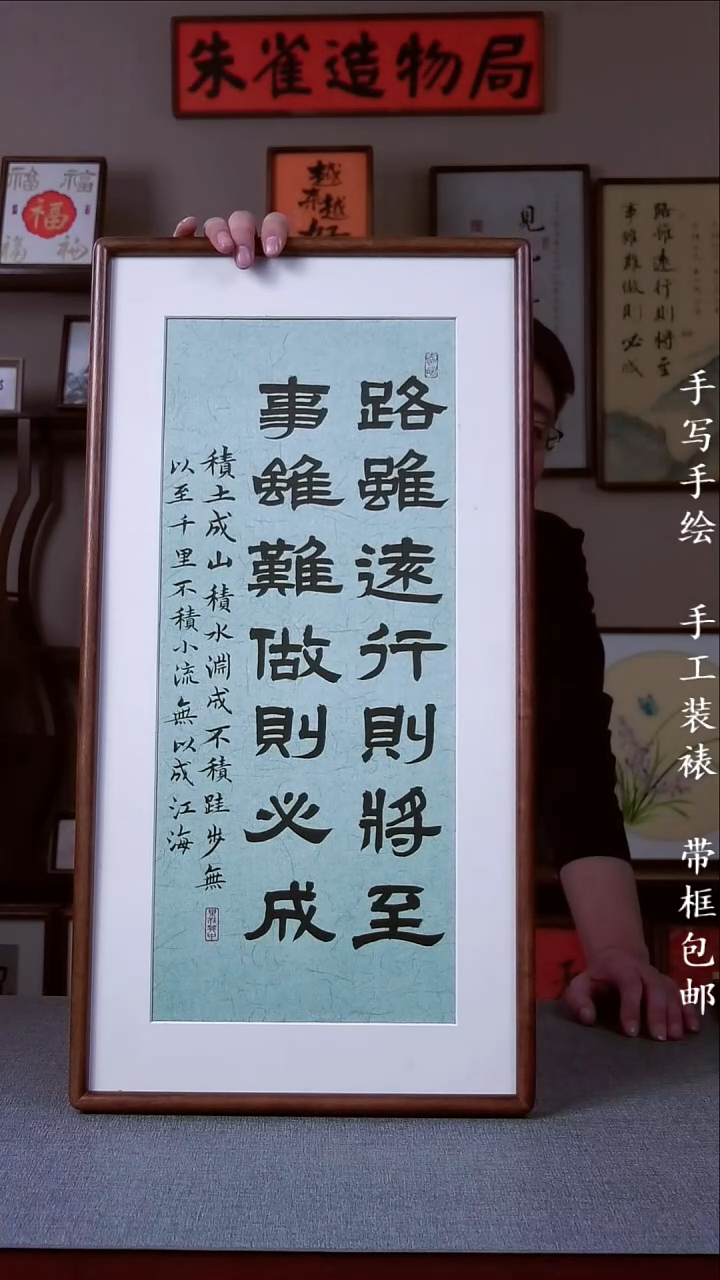 朱雀造物局
福 福
福
福 福
越
来越
好
見
路雖遠行則將至
事雖難做則必成
路雖遠行則將至
事雖難做則必成
積土成山積水淵成不積跬步無
以至千里不積小流無以成江海
手写手绘 手工装裱 带框包邮